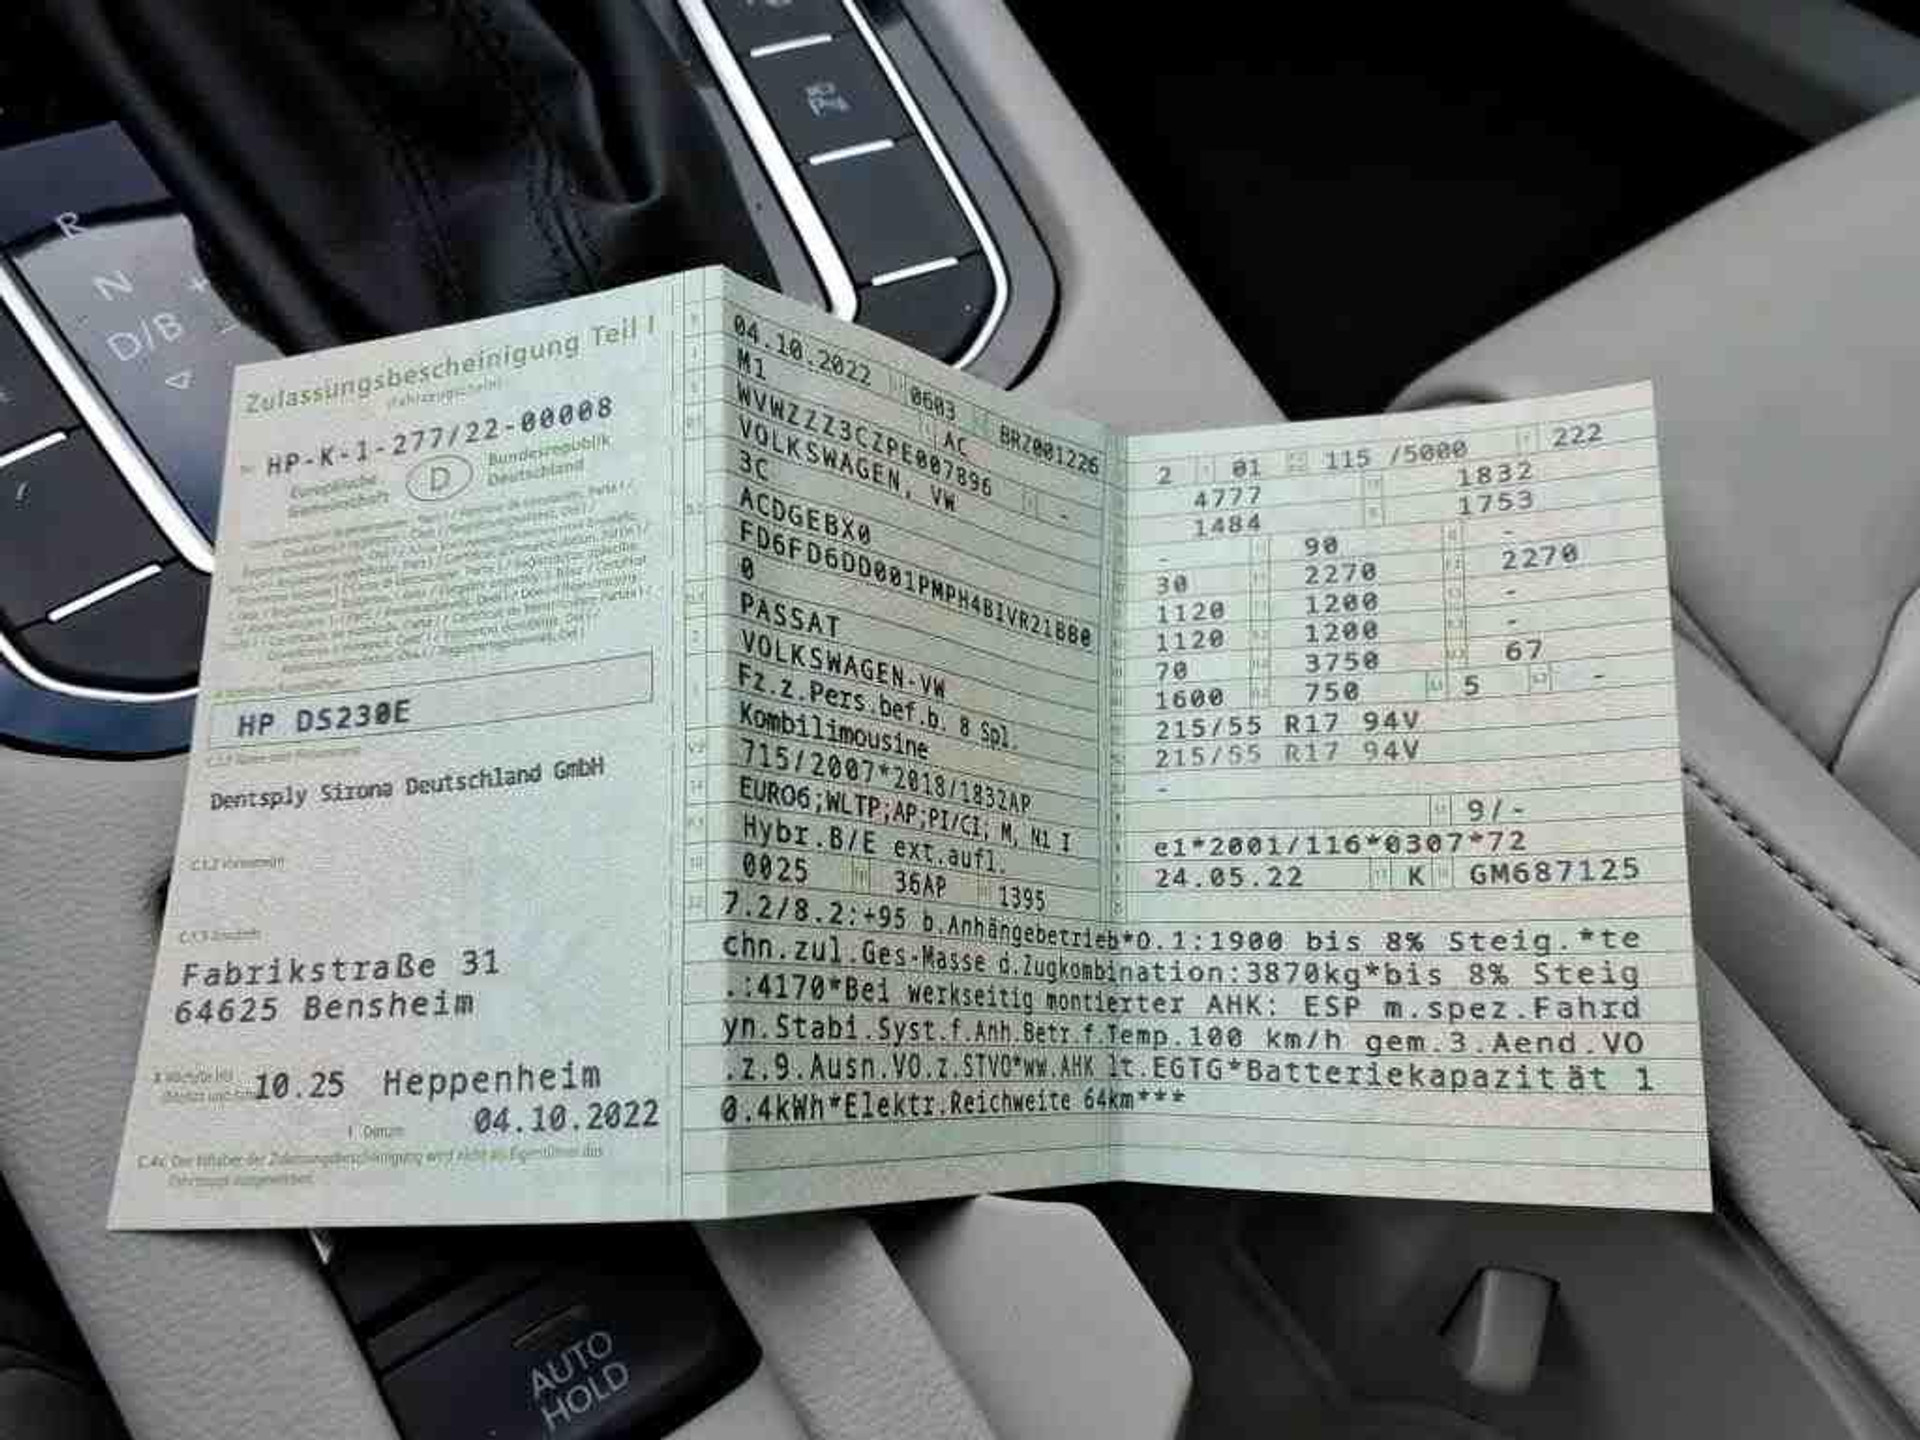 R
N
D/B
+
-
Zulassungsbescheinigung Teil I
(Fahrzeugschein)
HP-K-1-277/22-00008
Europäische Gemeinschaft
D
Bundesrepublik Deutschland
HP DS230E
Dentsply Sirona Deutschland GmbH
C.1.2 Vorname(n)
C.1.3 Anschrift
Fabrikstraße 31
64625 Bensheim
10.25 Heppenheim
I Datum 04.10.2022
C.4c Der Inhaber der Zulassungsbescheinigung wird nicht als Eigentümer des
Fahrzeugs ausgewiesen.
04.10.2022 0603 BRZ001226
M1 AC
WVWZZZ3CZPE007896 -
VOLKSWAGEN, VW
3C
ACDGEBX0
FD6FD6DD001PMPH4BIVR21BB0
0
PASSAT
VOLKSWAGEN-VW
Fz.z.Pers.bef.b. 8 Spl.
Kombilimousine
715/2007*2018/1832AP
EURO6;WLTP;AP;PI/CI; M, N1 I
Hybr.B/E ext.aufl.
0025 36AP 1395
2 01 115 /5000 222
4777 1832
1484 1753
- 90 -
30 2270 2270
1120 1200 -
1120 1200 -
70 3750 67
1600 750 5 -
215/55 R17 94V
215/55 R17 94V
-
9/-
e1*2001/116*0307*72
24.05.22 K GM687125
7.2/8.2:+95 b.Anhängebetrieb*O.1:1900 bis 8% Steig.*te
chn.zul.Ges-Masse d.Zugkombination:3870kg*bis 8% Steig
.:4170*Bei werkseitig montierter AHK: ESP m.spez.Fahrd
yn.Stabi.Syst.f.Anh.Betr.f.Temp.100 km/h gem.3.Aend.VO
.z.9.Ausn.VO.z.STVO*ww.AHK lt.EGTG*Batteriekapazität 1
0.4kWh*Elektr.Reichweite 64km***
AUTO
HOLD